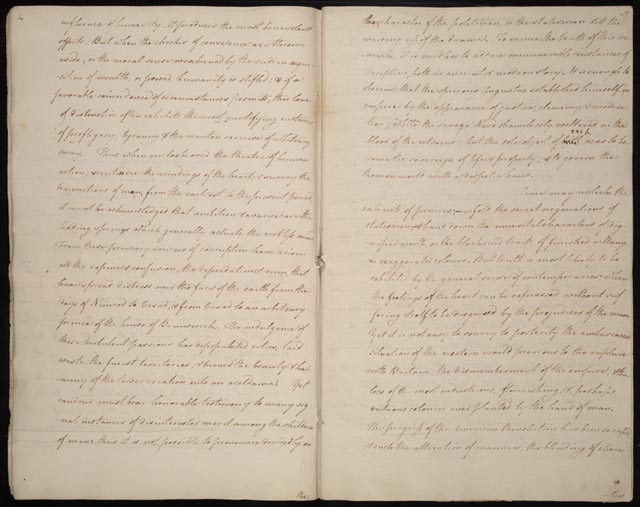 influence of humanity, it produces the most benevolent
effects; But when the checks of conscience are thrown
aside, or the moral sense weakened by the sudden acqui
sition of wealth, or power, humanity is stifled; & if a
favorable coincidence of circumstances permits, this love
of distinction often exhibits the most mortifying instances
of profligacy, tyranny & the wanton exercise of arbitrary
sway. Thus when we look over the theatre of human
action, scrutinize the windings of the heart, & survey the
transactions of man, from the earliest to the present period,
it must be acknowledged that ambition & avarice are the
leading springs which generally actuate the restless mind.
From these primary sources of corruption have arisen
all the rapine & confusion, the depredation & ruin, that
have spread distress over the face of the earth from the
days of Nimrod to Cesar, & from Cesar to an arbitrary
prince of the house of Brunswick. The indulgence of
these turbulent passions has depopulated cities, laid
waste the finest territories, & turned the beauty & har
mony of the lower creation into an aceldama. Yet
candour must bear honorable testimony to many sig
nal instances of disinterested merit among the children
of men: thus it is not possible to pronounce decidedly on
the
the character of the politician, or the statesman till the
winding up of the drama. To evince the truth of this re
mark, it is needless to adduce innumerable instances of
deception, both in ancient & modern story. It is enough to
observe, that the specious Augustus established himself in
empire by the appearance of justice, clemency & modera
tion, whilst the savage Nero shamelessly weltered in the
blood of the citizens; but the sole object of each was to be
come the sovereign of life & property, & to govern the
Roman world with a despotic hand.
Time may unlock the
cabinets of princes, unfold the secret negociations of
statesmen, & hand down the immortal characters of dig
nified worth, or the blackened traits of finished villany
in exaggerated colours. But truth is most likely to be
exhibited by the general sense of contemporaries, when
the feelings of the heart can be expressed without suf
fering itself to be disguised by the prejudices of the man.
Yet it is not easy to convey to posterity the embarrassed
situation of the western world previous to the rupture
with Britain; the dismemberment of the empire, & the
loss of the most industrious, flourishing, & perhaps
virtuous colonies ever planted by the hand of man.
The progress of the American Revolution has been so rapid
& such the alteration of manners, the blending of charac